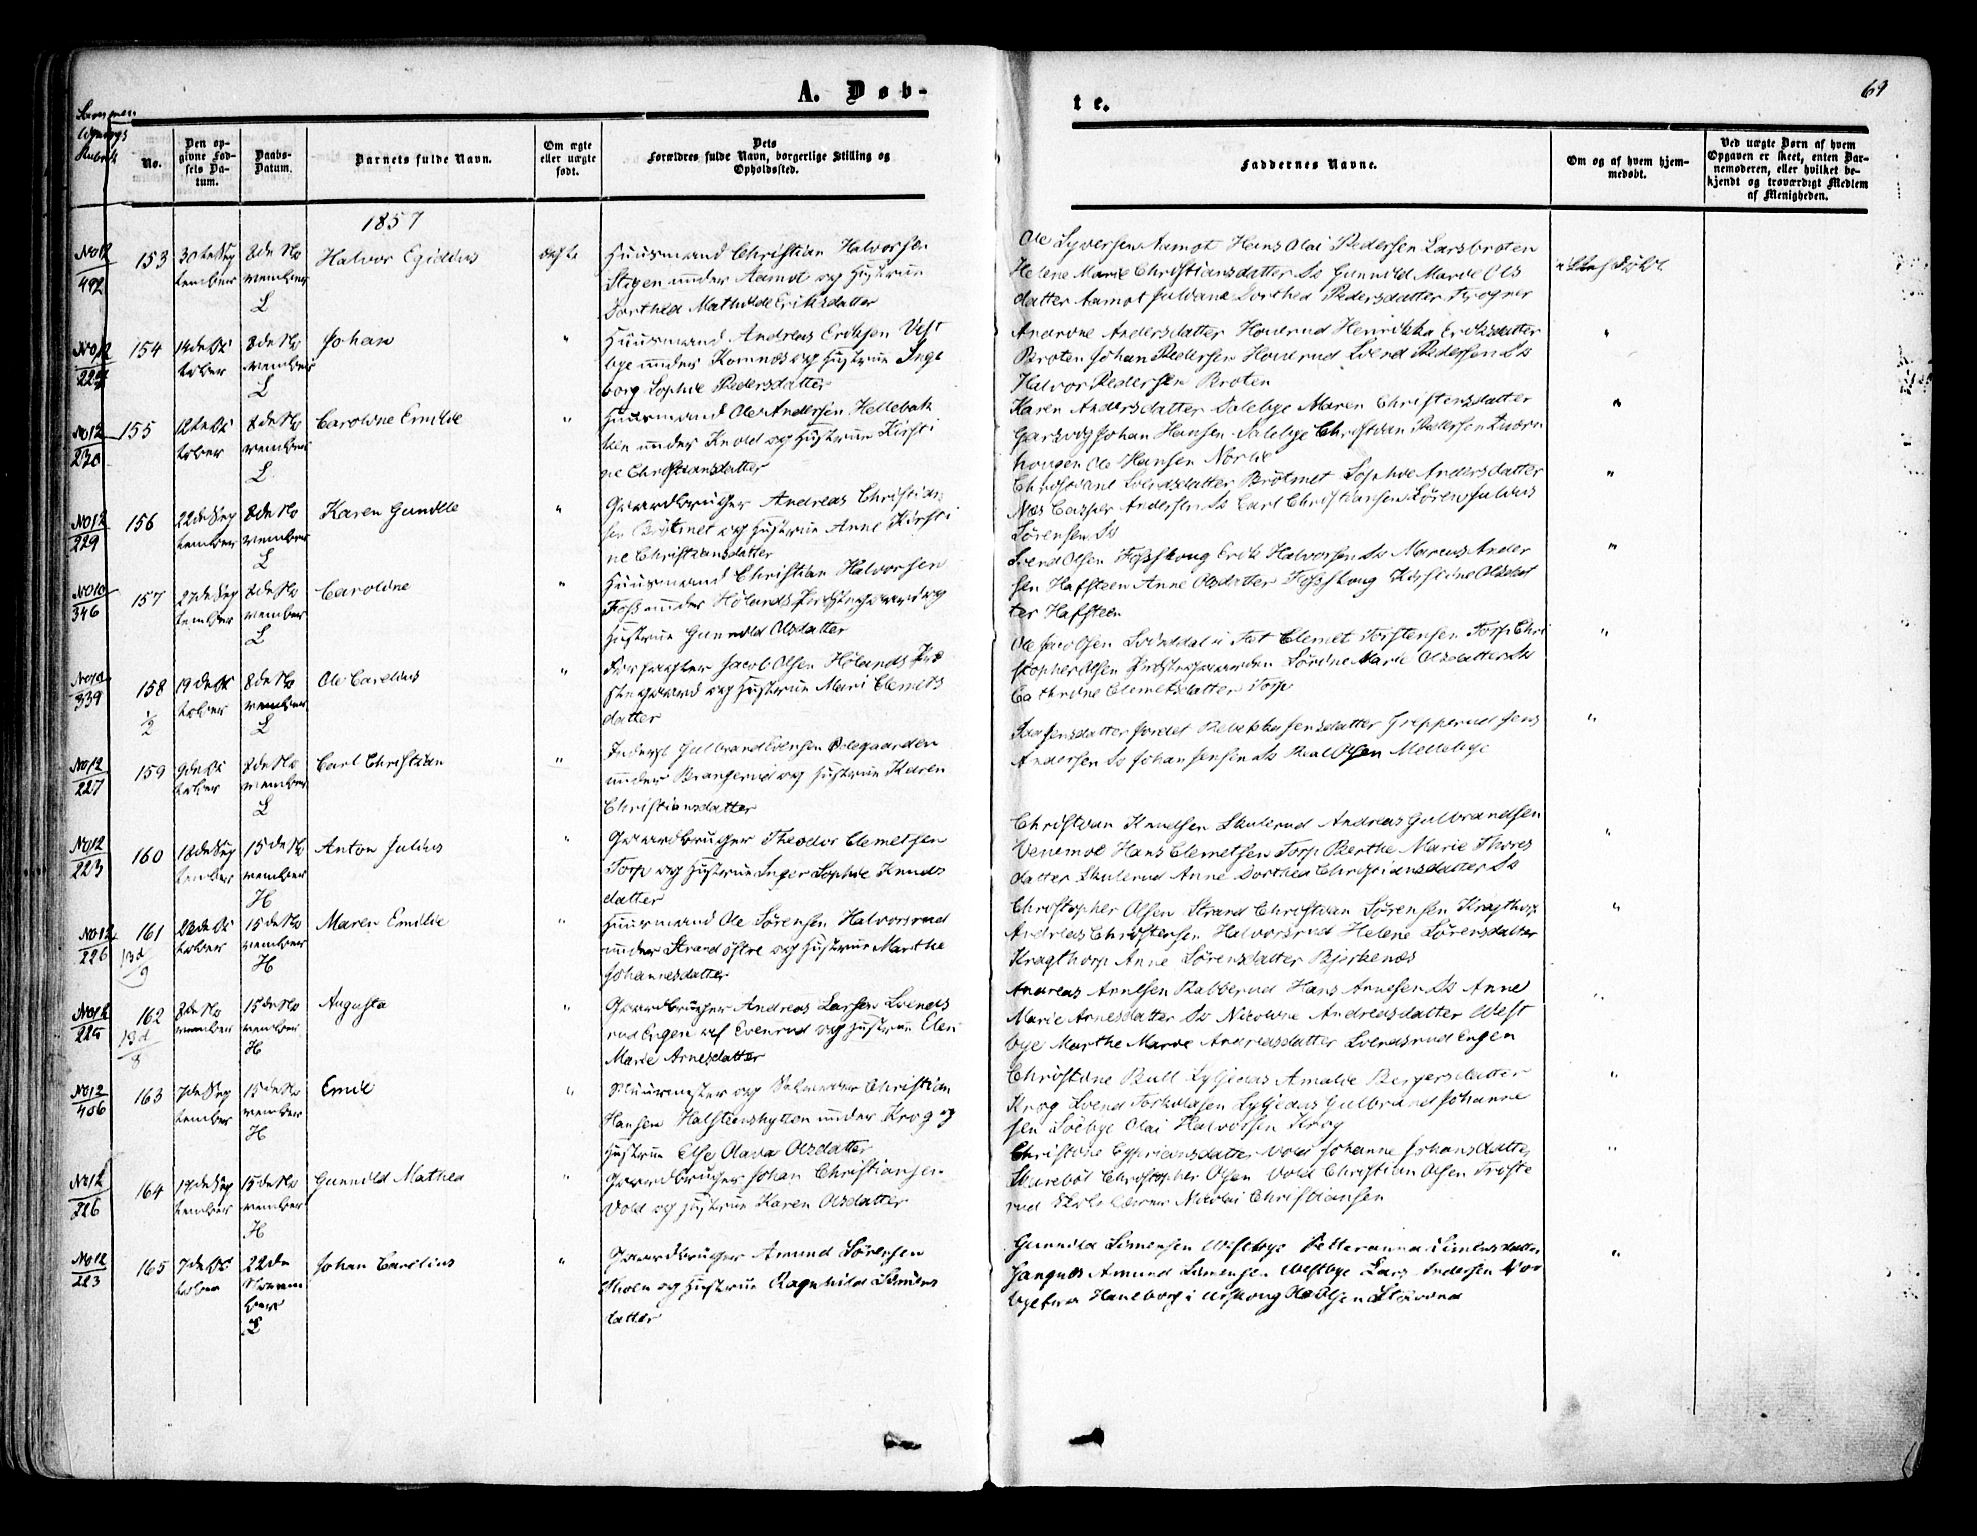 A. Døb-
te.
69
No.
Den op-
givne Fød-
sels Da-
tum.
Daabs-
Datum.
Barnets fulde Navn.
Om ægte
eller uægte
født.
Dets
Forældres fulde Navn, borgerlige Stilling og
Opholdssted.
Faddernes Navne.
Om og af hvem hjem-
medøbt.
Ved uægte Børn af hvem
Opgaven er skeet, enten Bar-
nemoderen, eller hvilket be-
kjendt og troværdigt Medlem
af Menigheden.
1857
No 12
492
153
30te Sep
tember
8de No
vember
L
Halvor Egidius
ægte
Huusmand Christian Halvorsen
Stigen under Aamot og Hustrue
Dorthea Mathilde Eriksdatter
Ole Syversen Aamot Hans Olai Pedersen Larsbroten
Helene Marie Christiansdatter Ss Gunnild Marie Ols
datter Aamot Juliane Dorthea Pedersdatter Krogner
No 12
154
14de Oc
tober
8de No
vember
L
Johan
"
Huusmand Andreas Eriksen Vest
bye under Komnes og Hustrue Inge
borg Sophie Pedersdatter
Andrine Andersdatter Houerud Henrikka Eriksdatter
Broten Johan Pedersen Houerud Svend Pedersen Ss
Halvor Pedersen Broten
"
No 12
230
155
12te Oc
tober
8de No
vember
L
Caroline Emilie
"
Huusmand Ole Andersen Hellebæk
ken under Knold og Hustrue Kirsti
ne Christiansdatter
Karen Andersdatter Salebye Maren Christensdatter
Garsvig Johan Hansen Salebye Christian Pedersen Kværn
hougen Ole Hansen Norlie
"
No 12
229
156
22de Sep
tember
8de No
vember
L
Karen Gunille
"
Gaardbruger Andreas Christian
sen Brotmet og Hustrue Anne Kirsti
ne Christiansdatter
Christiane Svendsdatter Brotmet Sophie Andersdatter
Næs Casper Andersen Ss Carl Christiansen Søren Julius
Sørensen Ss
"
No 10
346
157
27de Sep
tember
8de No
vember
L
Caroline
"
Huusmand Christian Halvorsen
Foss under Hølands Præstegaard og
Hustrue Gunnild Olsdatter
Svend Olsen Fosshoug Erik Halvorsen Ss Marcus Ander
sen Hafsteen Anne Olsdatter Fosshoug Kirstine Olsdat
ter Hafsteen
"
No 10
339
158
1/2
19de Oc
tober
8de No
vember
L
Ole Carelius
"
Forpagter Jacob Olsen Hølands Præ
stegaard og Hustrue Mari Clemets
datter
Ole Jacobsen Svinddal i Fet Clemet Torstensen Torp Chri
stopher Olsen Præstegaarden Sørine Marie Olsdatter Ss
Cathrine Clemetsdatter Torp
"
No 12
227
159
9de Oc
tober
8de No
vember
L
Carl Christian
"
Inderst Gulbrand Evensen Ødegaarden
under Brangerud og Hustrue Karen
Christiansdatter
Ida Jensdatter Jordet Rebekka Jensdatter Grepperud Jens
Andersen Ss Johan Jensen Ss Paal Olsen Mellebye
"
No 12
223
160
18de Sep
tember
15de No
vember
H
Anton Julius
"
Gaardbruger Theodor Clemetsen
Torp og Hustrue Inger Sophie Knuds
datter
Christian Knudsen Skulerud Andreas Gulbrandsen
Venemoe Hans Clemetsen Torp Berthe Marie Thores
datter Skulerud Anne Dorthea Christiansdatter Ss
"
No 12
226
161
13d
9
23de Oc
tober
15de No
vember
H
Maren Emilie
"
Huusmand Ole Sørensen Halvorsrud
under Strand østre og Hustrue Marthe
Johannesdatter
Christopher Olsen Strand Christian Sørensen Kragtorp
Andreas Christensen Halvorsrud Helene Sørensdatter
Kragthorp Anne Sørensdatter Bjerkenæs
"
No 12
225
162
13d
8
2de No
vember
15de No
vember
H
Augusta
"
Gaardbruger Andreas Larsen Svends
rud Engen af Evenrud og Hustrue Elen
Marie Arnesdatter
Andreas Arnesen Rabberud Hans Arnesen Ss Anne
Marie Arnesdatter Ss Nicoline Andreasdatter West
bye Marthe Marie Andreasdatter Svendsrud Engen
"
No 12
406
163
7de Sep
tember
15de No
vember
H
Emil
"
Muurmester og Selveier Christian
Hansen Halsteenshytten under Krog og
Hustrue Else Olava Olsdatter
Christine Bull Lysjeaas Amalie Bergersdatter
Krog Svend Torkildsen Lysjeaas Gulbrand Johanne
sen Soebye Olai Halvorsen Krog
"
No 12
226
164
17de Sep
tember
15de No
vember
H
Gunnild Mathea
"
Gaardbruger Johan Christiansen
Vold og Hustrue Karen Olsdatter
Christine Cypriansdatter Vold Johanne Johansdatter
Skurebøl Christopher Olsen Vold Christian Olsen Friste
rud Skolelærer Nicolai Christiansen
"
No 12
223
165
7de Oc
tober
22de
Novem
ber
L
Johan Carelius
"
Gaardbruger Amund Sørensen
Holm og Hustrue Ragnhild Simens
datter
Gunnild Simensen Westbye Petteranna Simensdatter
Hangnæs Amund Simensen Westbye Lars Andersen
Haneborg i Urskoug Ole Olsen
"